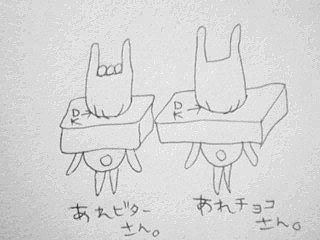 DK
DK
あれビター
さん。
あれチョコ
さん。